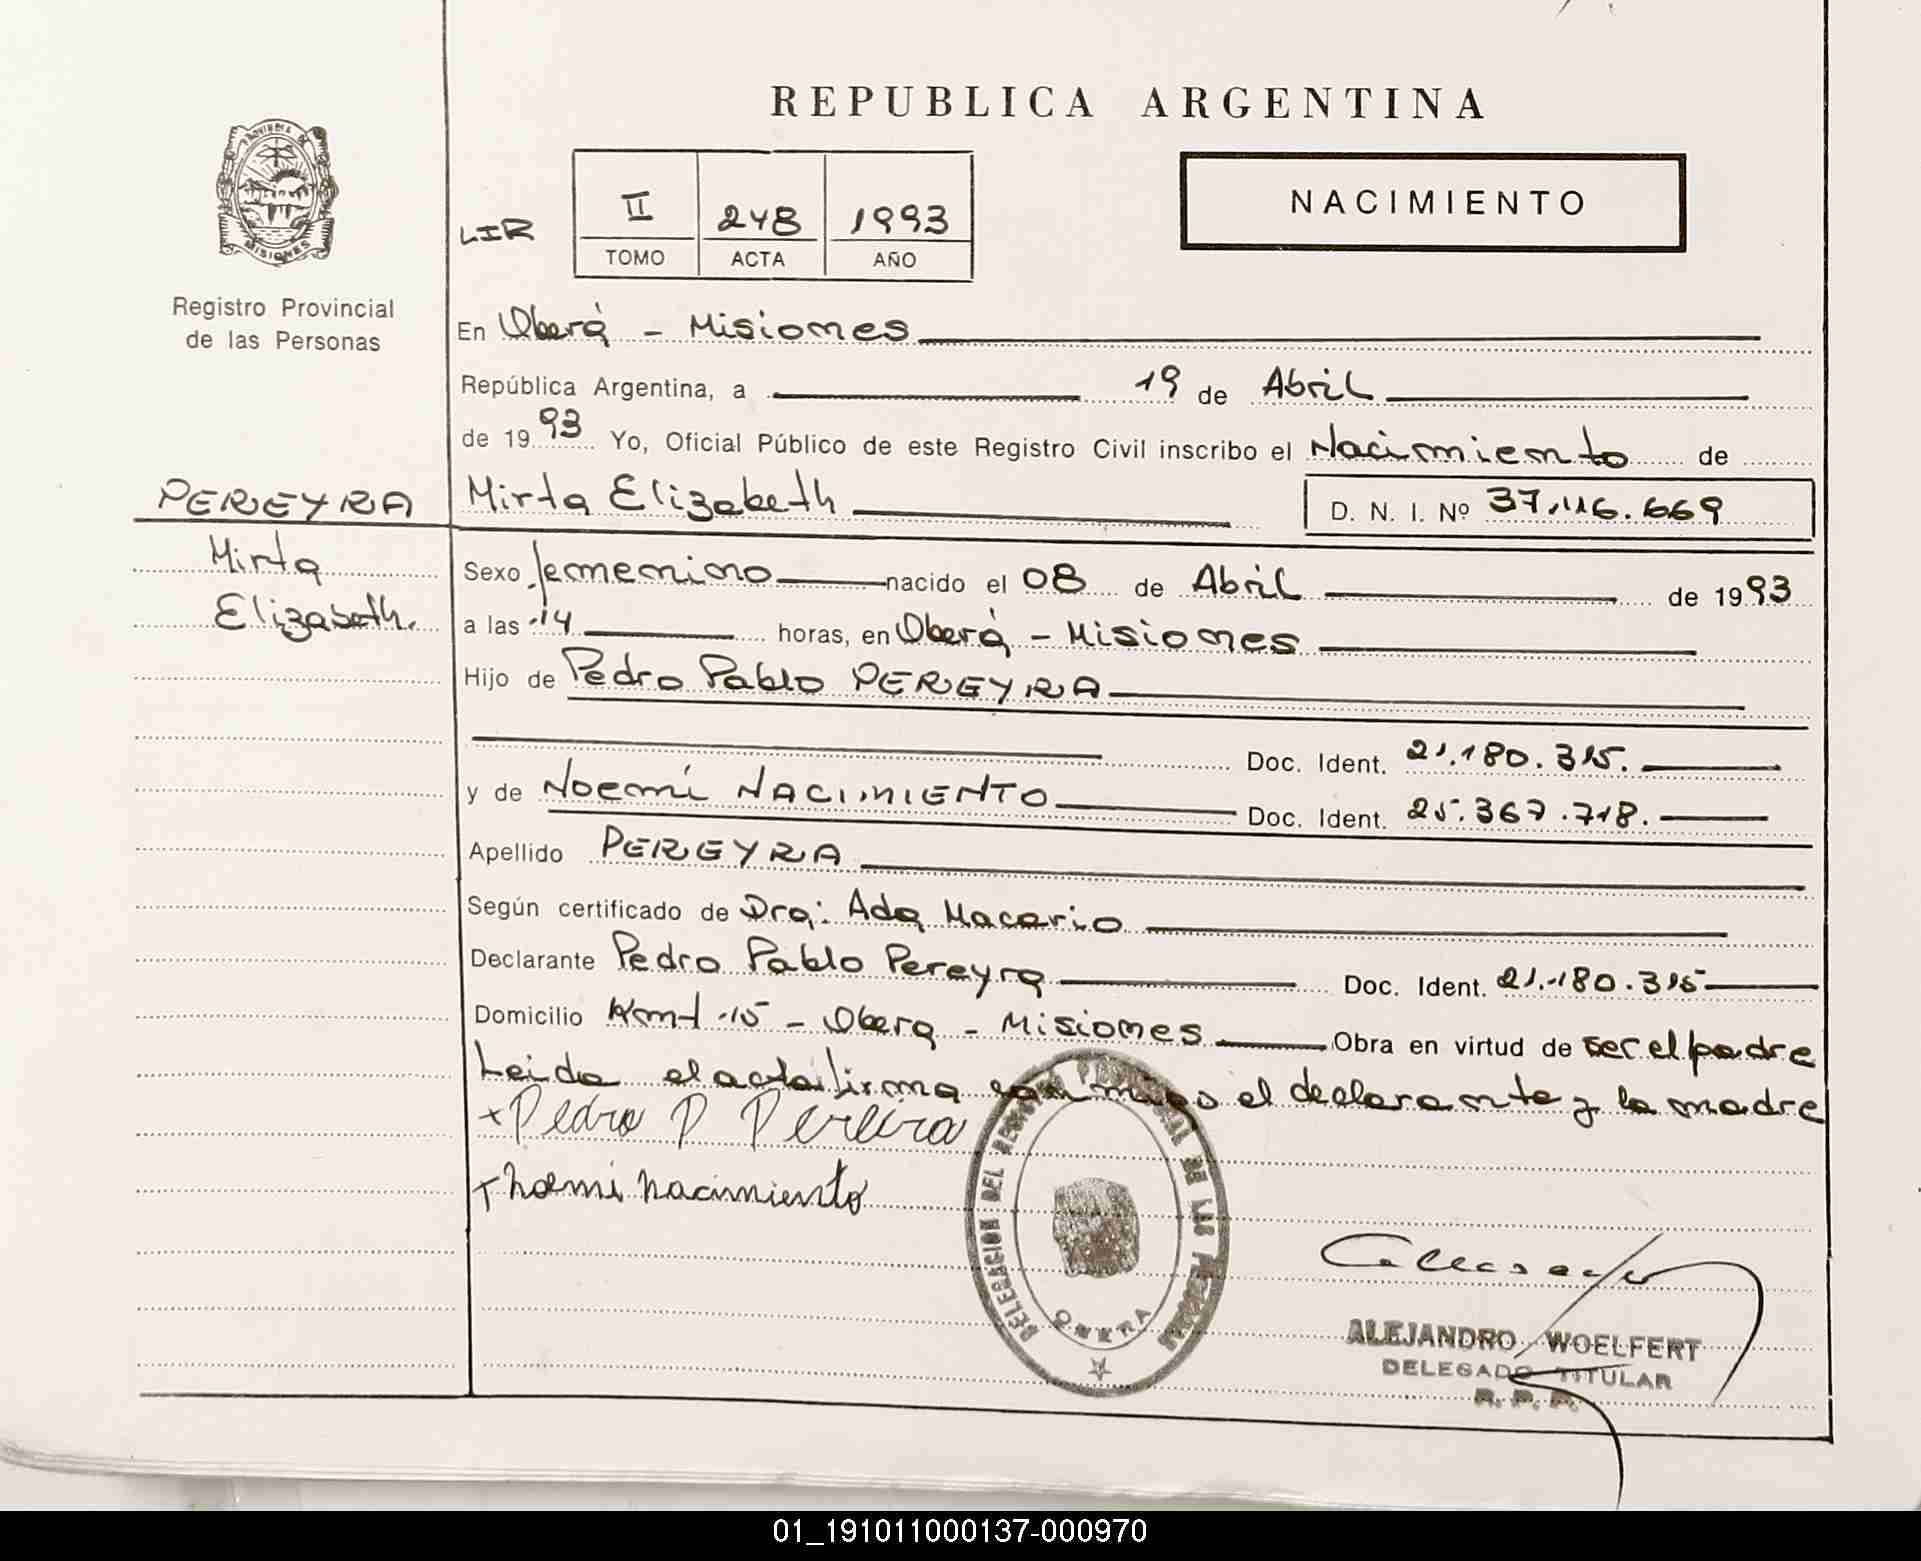 REPUBLICA ARGENTINA
PROVINCIA DE
MISIONES
Registro Provincial
de las Personas
LIR
II 248 1993
TOMO ACTA AÑO
NACIMIENTO
En Oberá - Misiones
República Argentina, a 19 de Abril
de 1993 Yo, Oficial Público de este Registro Civil inscribo el Nacimiento de
PEREYRA Mirta Elizabeth D. N. I. Nº 37.116.669
Mirta
Elizabeth.
Sexo femenino nacido el 08 de Abril de 1993
a las 14 horas, en Oberá - Misiones
Hijo de Pedro Pablo PEREYRA
Doc. Ident. 21.180.315.
y de Noemí NACIMIENTO Doc. Ident. 25.367.718.
Apellido PEREYRA
Según certificado de Dra: Ada Macario
Declarante Pedro Pablo Pereyra Doc. Ident. 21.180.315
Domicilio Km 15 - Obera - Misiones Obra en virtud de ser el padre
Leida el acta firma con migo el declarante y la madre
x Pedro P Pereira
x noemi nacimiento
DELEGACION DEL REGISTRO PROVINCIAL DE LAS PERSONAS
OBERA
ALEJANDRO WOELFERT
DELEGADO TITULAR
R. P. P.
01_191011000137-000970